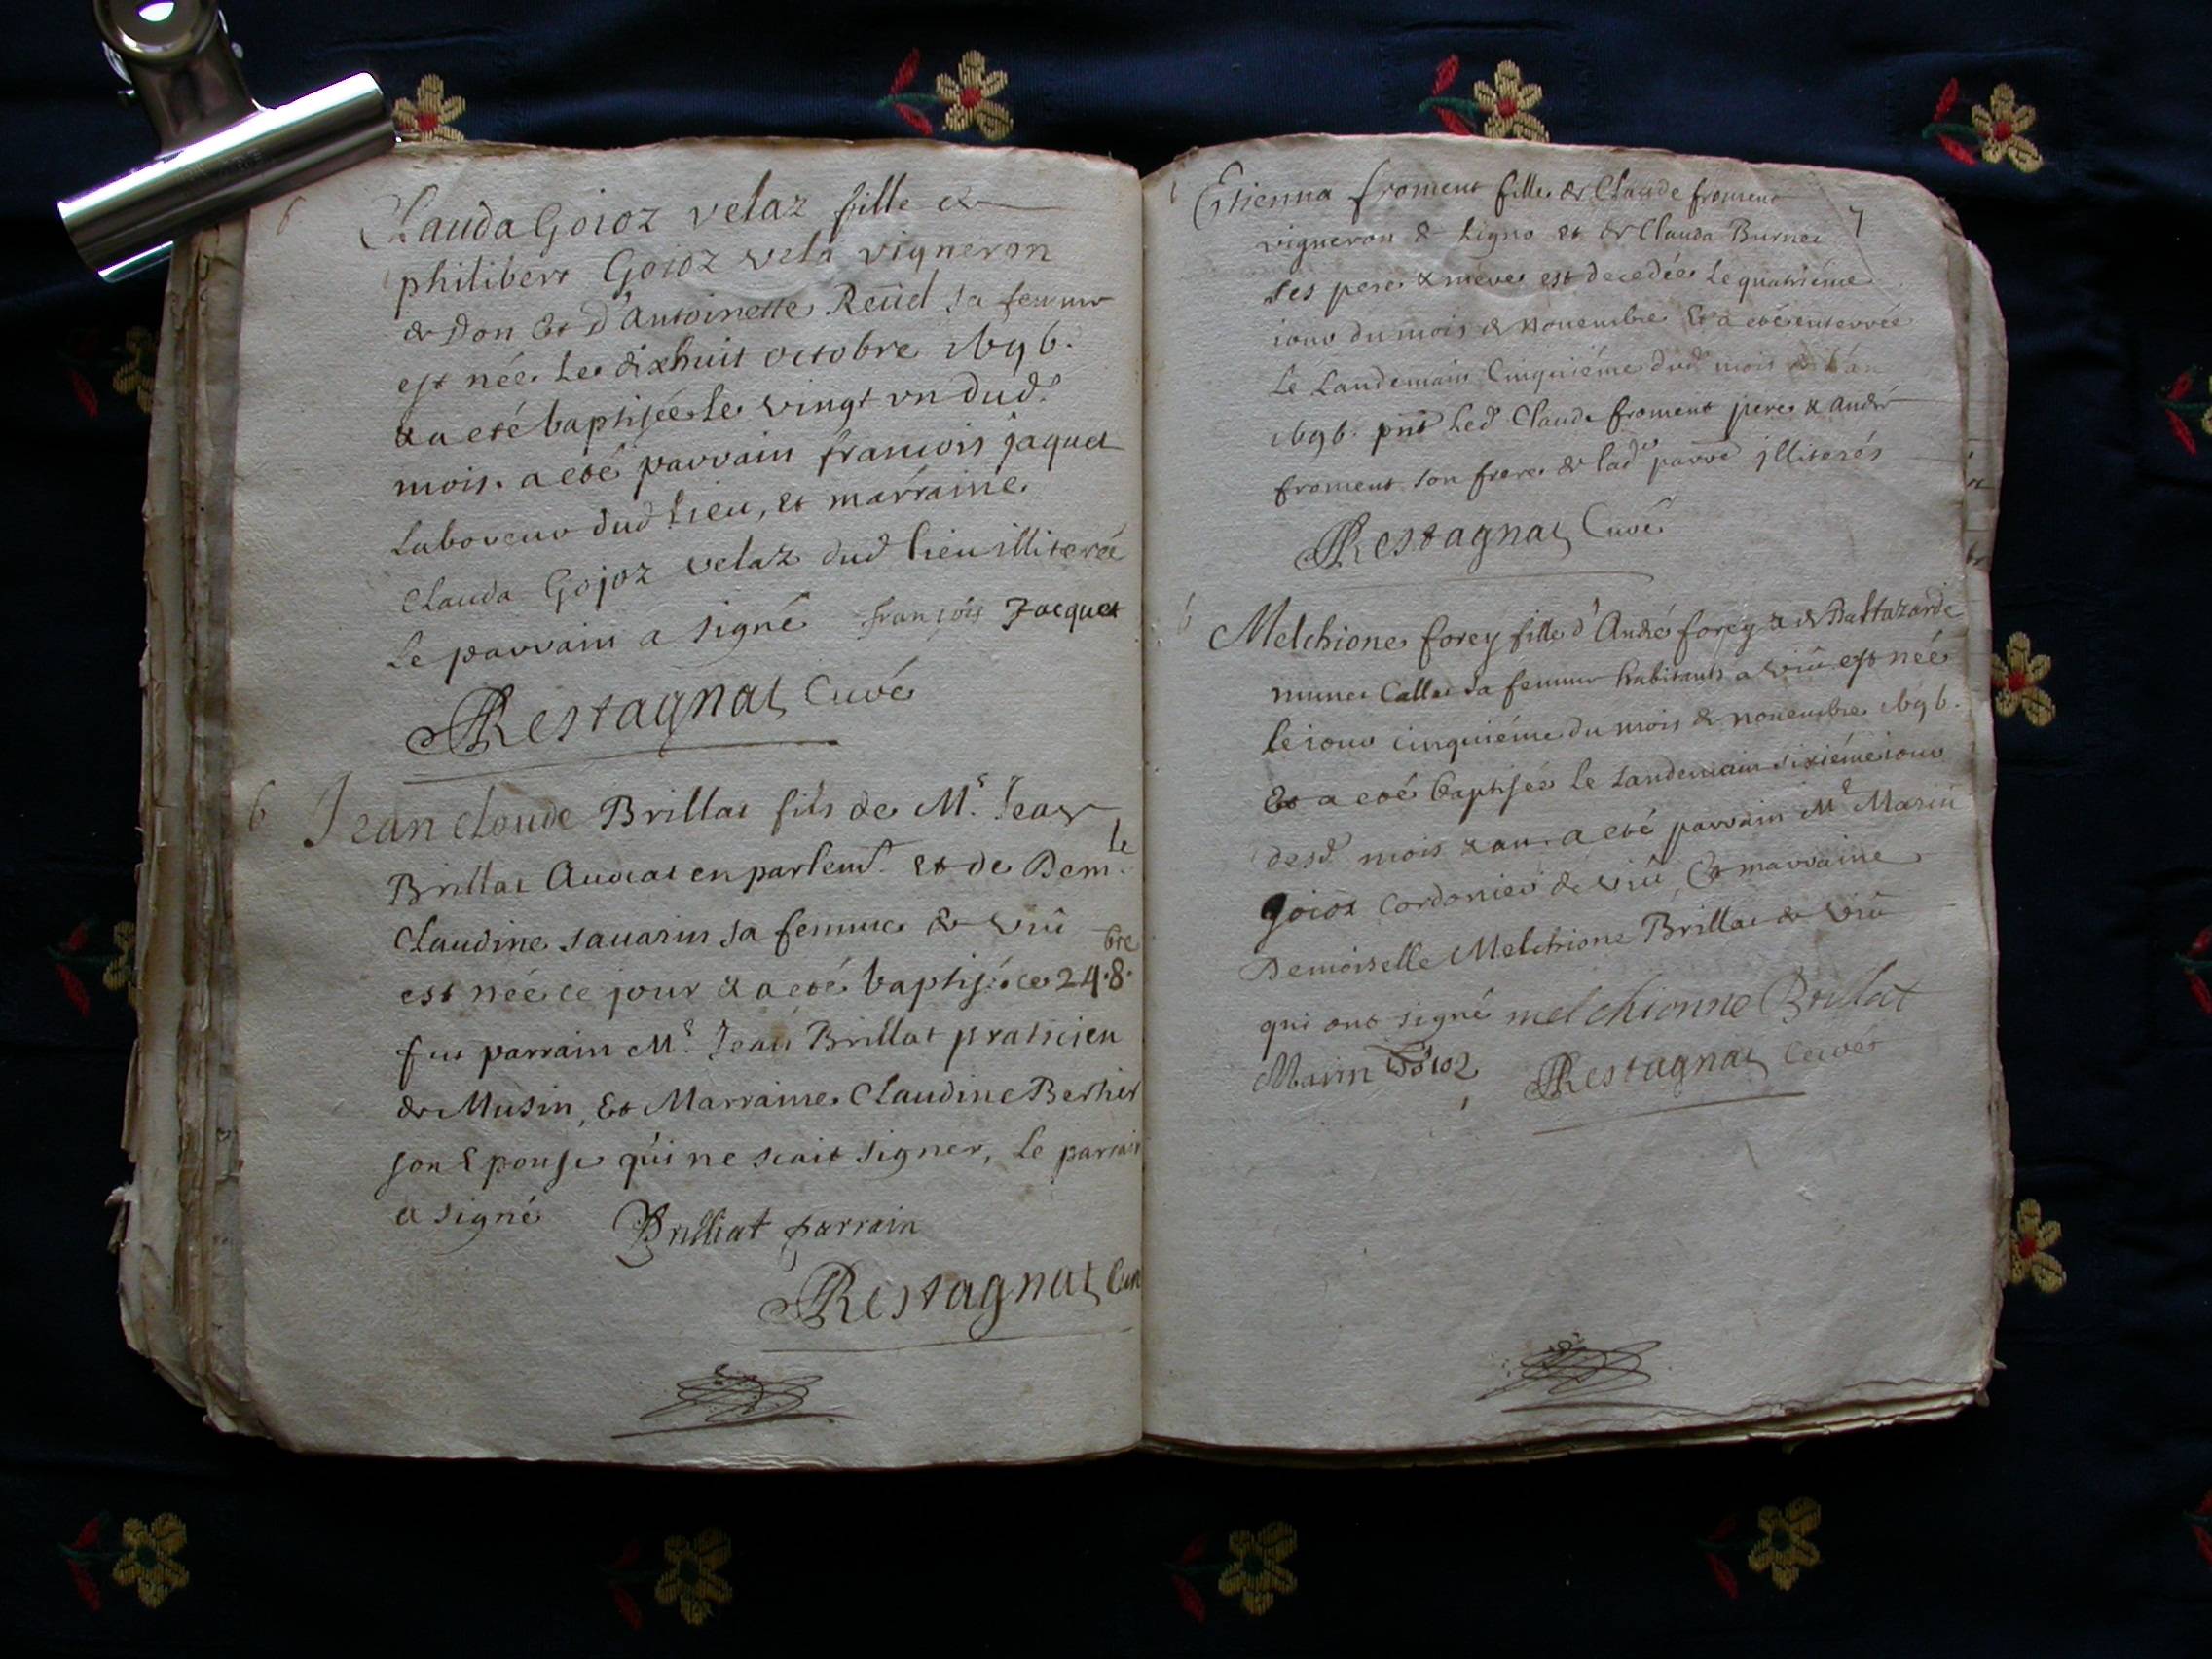 6
Clauda Goioz velaz fille de
philibert Goioz vela vigneron
de Don Et d'Antoinette Reüd sa femme
est née le dixhuit octobre 1696.
& a eté baptisée le vingt vn dud.
mois. a eté parrain francois jaquet
Laboreur dud lieu, et marraine
Clauda Gojoz velaz dud lieu illiteré
Le parrain a signé françois Jacquet
Restagnat Curé
6
Jean cloude Brillat fils de Mr. Jean
Brillat Auocat en parlemt. Et de Demlle.
Claudine sauarin sa femme de Viû
est née ce jour & a eté baptisé ce 24. 8.bre
fut parrain Mr. Jean Brillat praticien
de Musin, Et Marraine Claudine Berhier
son Epouse qui ne scait signer, Le parrain
a signé Brilliat parrain
Restagnat Cur
7
Etienna froment fille de Claude froment
vigneron de Ligno et de Clauda Burnet
ses pere & mere est decedée Le quatriéme
iour du mois de nouembre Et a eté enterrée
Le Landemain Cinquiéme dud mois & an
1696. pnt Led Claude froment pere & andré
froment son frere de lad parre illiterés
Restagnat Curé
6
Melchione forey fille d'André forey & de Baltazarde
Callet sa femme habitants a viû est née
le iour cinquiéme du mois de nouembre 1696.
Et a eté baptisée le Landemain sixiéme iour
desd mois & an. a eté parrain Mr Marin
Goioz Cordonier de viû, Et marraine
Demoiselle Melchione Brillat de viû
qui ont signé melchionne Brillat
Marin Goioz Restagnat Curé